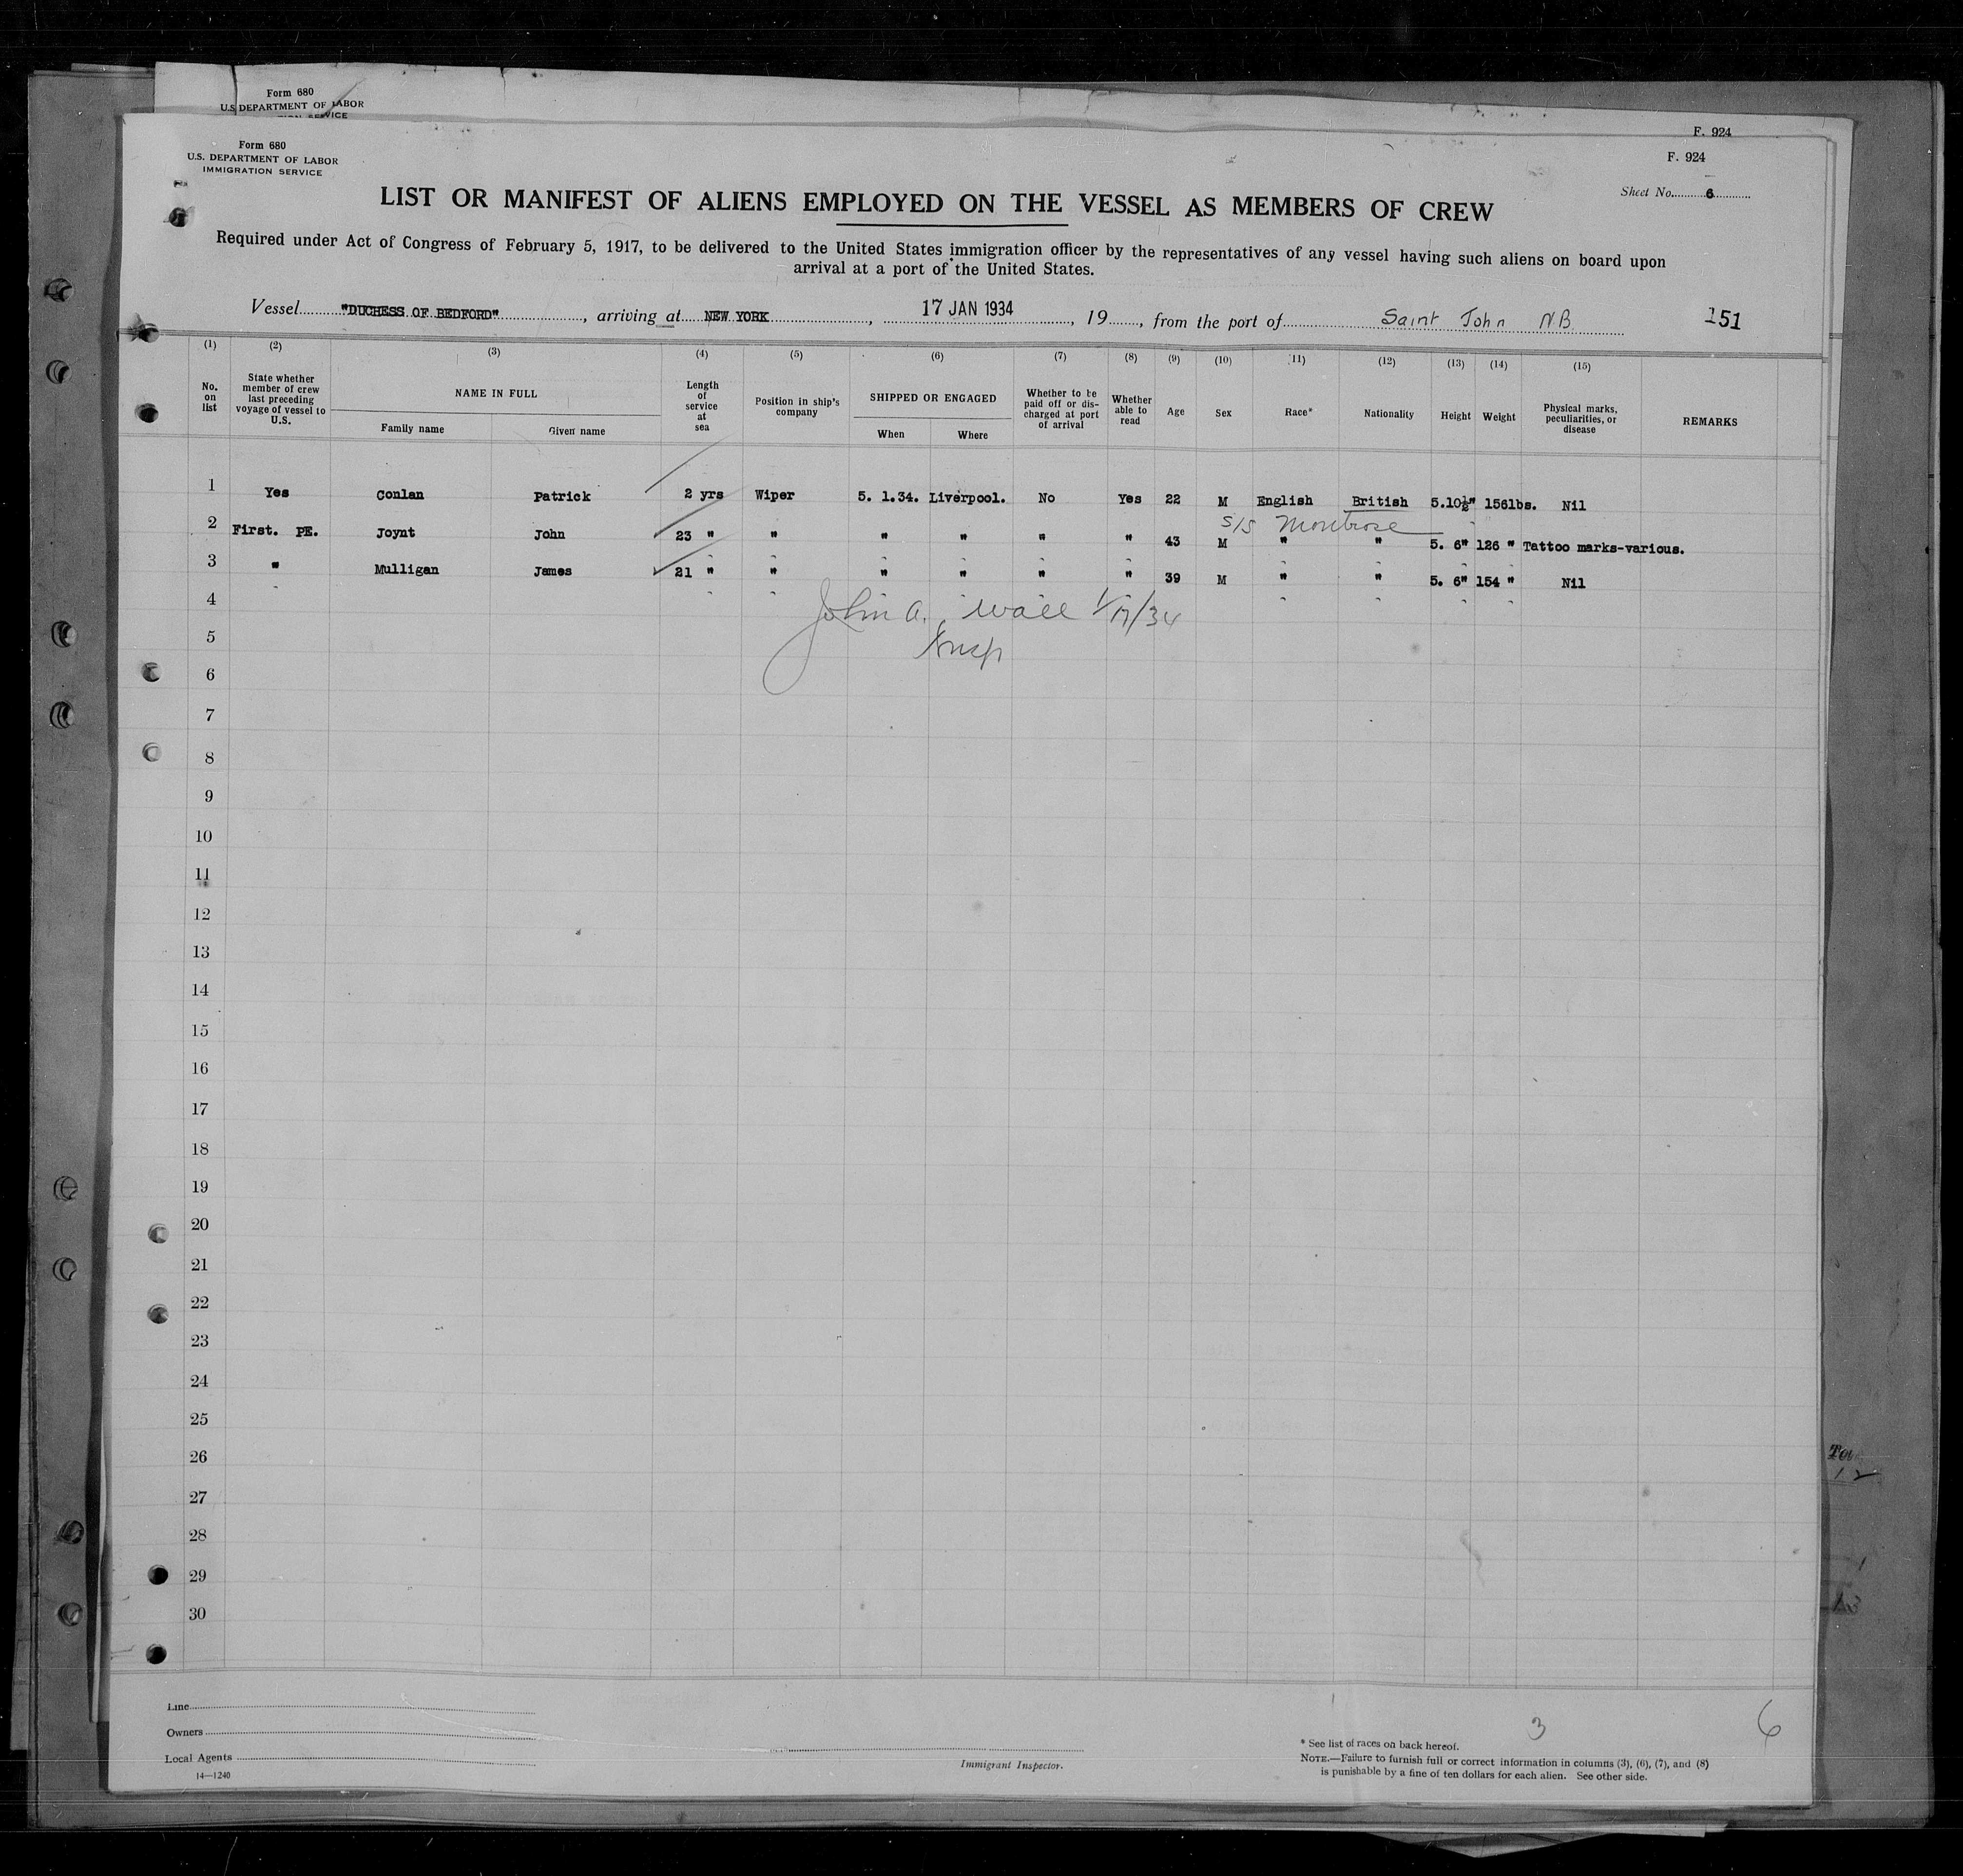 Form 680
U.S. DEPARTMENT OF LABOR
F. 924
Form 680
U.S. DEPARTMENT OF LABOR
IMMIGRATION SERVICE
F. 924
Sheet No. 6
LIST OR MANIFEST OF ALIENS EMPLOYED ON THE VESSEL AS MEMBERS OF CREW
Required under Act of Congress of February 5, 1917, to be delivered to the United States immigration officer by the representatives of any vessel having such aliens on board upon
arrival at a port of the United States.
Vessel "DUCHESS OF BEDFORD", arriving at NEW YORK, 17 JAN 1934, 19, from the port of Saint John NB 151
(1) (2) (3) (4) (5) (6) (7) (8) (9) (10) (11) (12) (13) (14) (15)
No. on list State whether member of crew last preceding voyage of vessel to U.S. NAME IN FULL Family name Given name Length of service at sea Position in ship's company SHIPPED OR ENGAGED When Where Whether to be paid off or discharged at port of arrival Whether able to read Age Sex Race* Nationality Height Weight Physical marks, peculiarities, or disease REMARKS
1 Yes Conlan Patrick 2 yrs Wiper 5. 1.34. Liverpool. No Yes 22 M English British 5.10½" 156lbs. Nil
s/s Montrose
2 First. PE. Joynt John 23 " " " " " " 43 M " " 5. 6" 126 " Tattoo marks-various.
3 " Mulligan James 21 " " " " " " 39 M " " 5. 6" 154 " Nil
4
John A. Wall 1/17/34
5
Insp
6
7
8
9
10
11
12
13
14
15
16
17
18
19
20
21
22
23
24
25
26
27
28
29
30
Line
Owners
Local Agents
14—1240
Immigrant Inspector.
3
6
* See list of races on back hereof.
NOTE.—Failure to furnish full or correct information in columns (3), (6), (7), and (8)
is punishable by a fine of ten dollars for each alien. See other side.